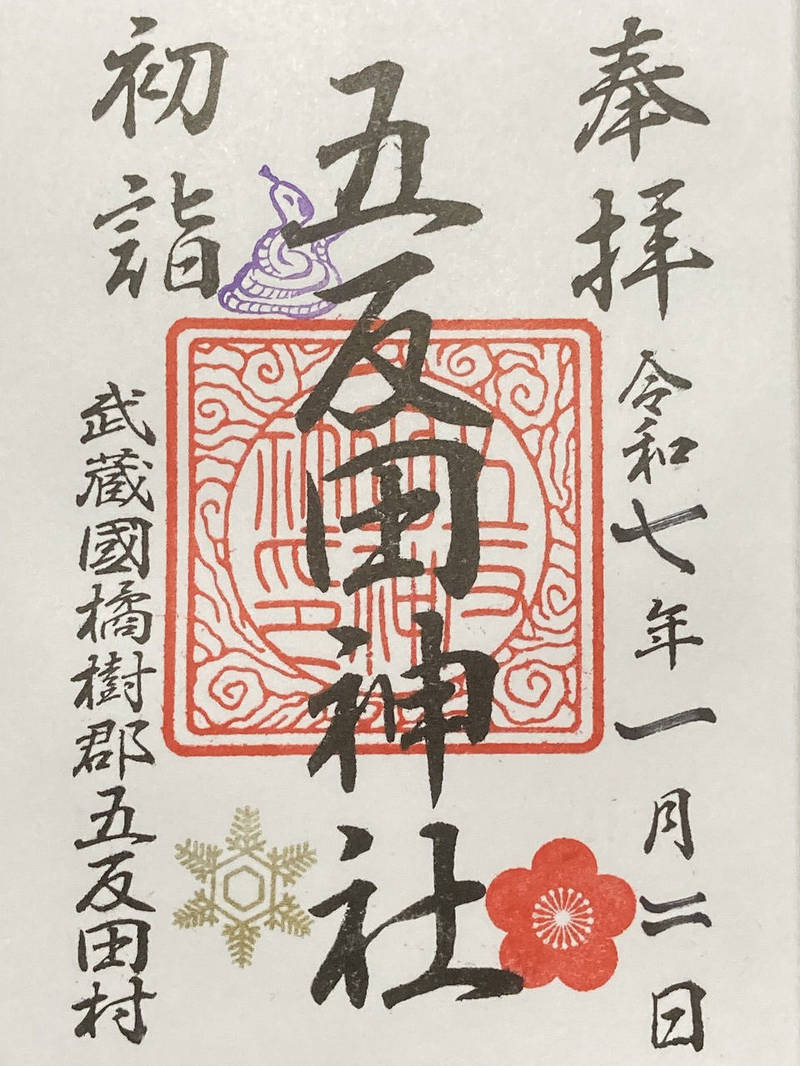 奉拝
令和七年一月二日
五反田神社
初詣
武蔵國橘樹郡五反田村